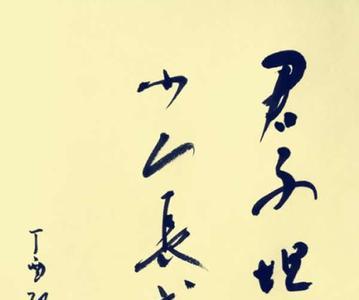 君子坦
小人長
丁酉